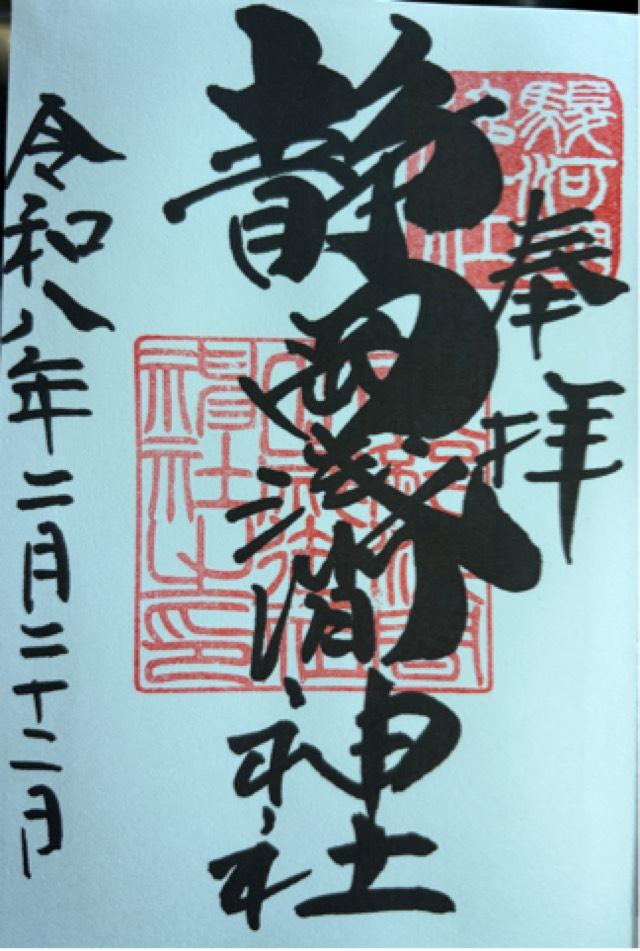 駿河國
奉拝
静岡浅間神社
神社之印
令和八年二月二十二日